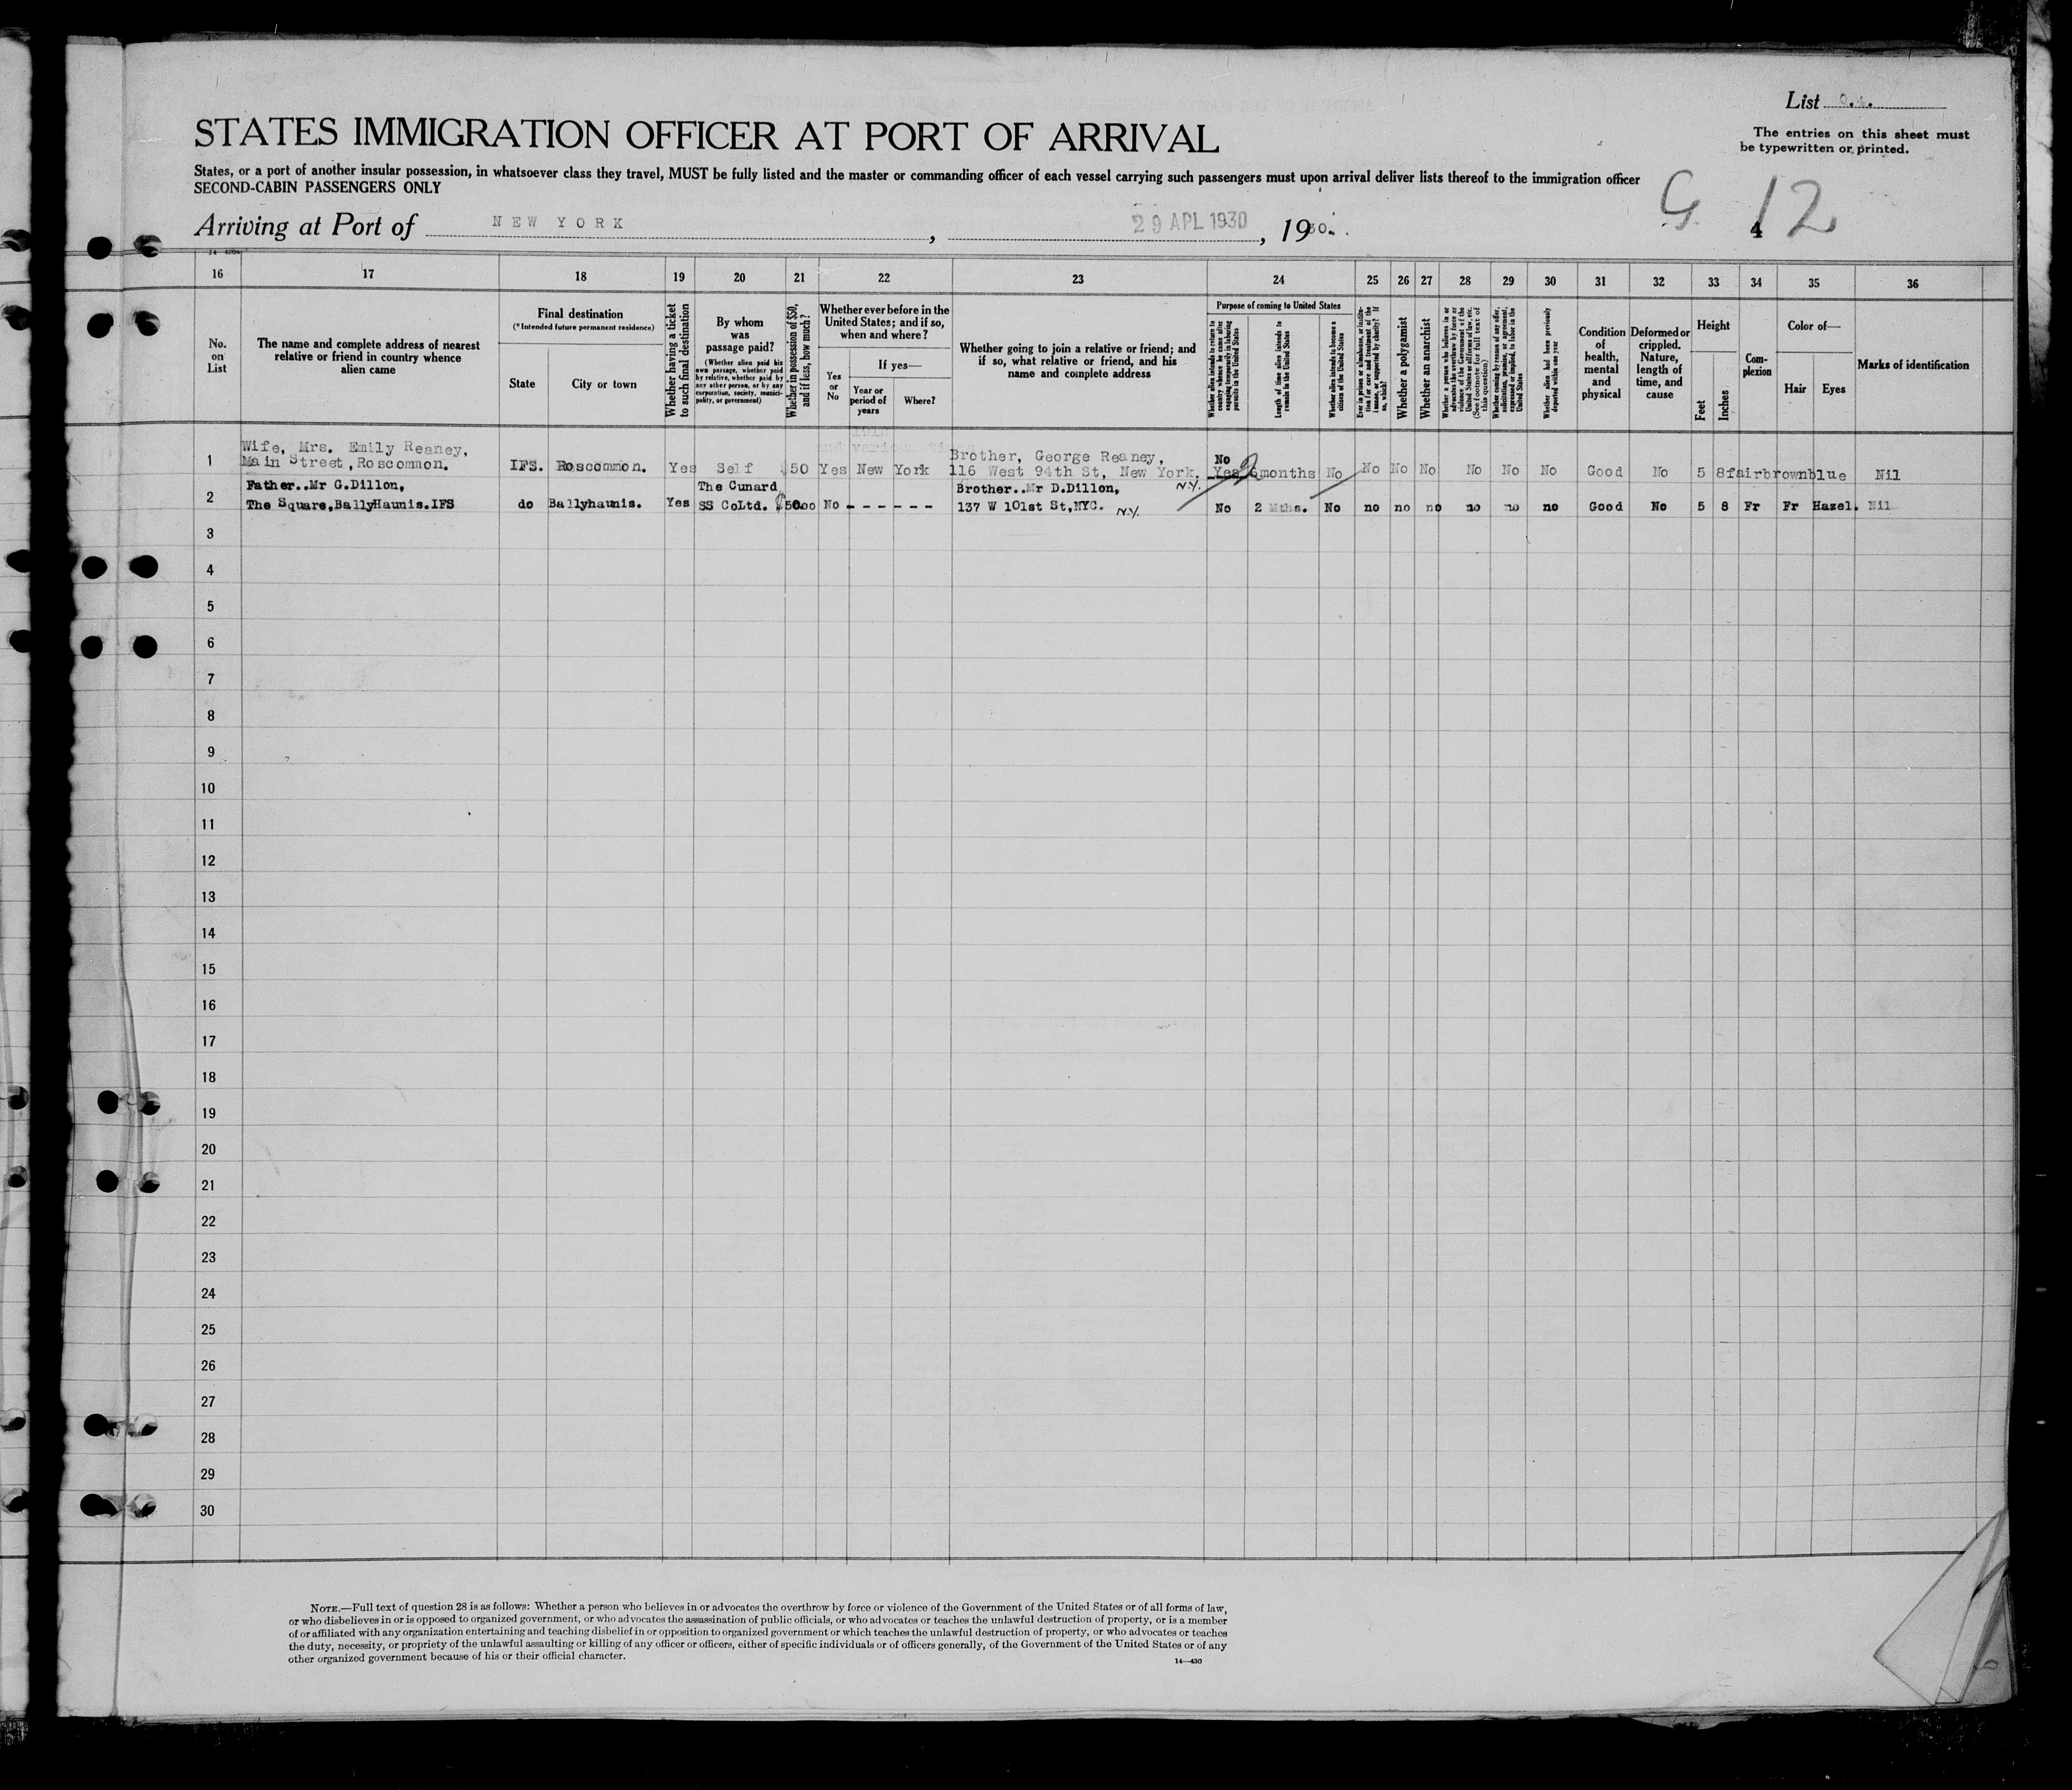 List
The entries on this sheet must
be typewritten or printed.
STATES IMMIGRATION OFFICER AT PORT OF ARRIVAL
States, or a port of another insular possession, in whatsoever class they travel, MUST be fully listed and the master or commanding officer of each vessel carrying such passengers must upon arrival deliver lists thereof to the immigration officer
SECOND-CABIN PASSENGERS ONLY
G 4 12
Arriving at Port of NEW YORK, 29 APL 1930, 1930.
16 17 18 19 20 21 22 23 24 25 26 27 28 29 30 31 32 33 34 35 36
No. on List
The name and complete address of nearest
relative or friend in country whence
alien came
Final destination
(*Intended future permanent residence)
State
City or town
Whether having a ticket
to such final destination
By whom
was
passage paid?
(Whether alien paid his
own passage, whether paid
by relative, whether paid by
any other person, or by any
corporation, society, munici-
pality, or government)
Whether in possession of $50,
and if less, how much?
Whether ever before in the
United States; and if so,
when and where?
Yes
or
No
If yes—
Year or
period of
years
Where?
Whether going to join a relative or friend; and
if so, what relative or friend, and his
name and complete address
Purpose of coming to United States
Whether alien intends to return to
country whence he came after
engaging temporarily in laboring
pursuits in the United States
Length of time alien intends to
remain in the United States
Whether alien intends to become a
citizen of the United States
Ever in prison or almshouse, or institu-
tion for care and treatment of the
insane, or supported by charity? If
so, which?
Whether a polygamist
Whether an anarchist
Whether a person who believes in or
advocates the overthrow by force or
violence of the Government of the
United States or all forms of law, etc.
(See footnote for full text of
this question)
Whether coming by reason of any offer,
solicitation, promise, or agreement,
expressed or implied, to labor in the
United States
Whether alien had been previously
deported within one year
Condition
of
health,
mental
and
physical
Deformed or
crippled.
Nature,
length of
time, and
cause
Height
Feet
Inches
Com-
plexion
Color of—
Hair
Eyes
Marks of identification
and various times
1 Wife, Mrs. Emily Reaney, Brother, George Reaney, No
Main Street, Roscommon. IFS. Roscommon. Yes Self $50 Yes New York 116 West 94th St, New York. N.Y. Yes 2 months No No No No No No No Good No 5 8 fair brown blue Nil
2 Father..Mr G.Dillon, The Cunard Brother..Mr D.Dillon,
The Square, BallyHaunis. IFS do Ballyhaunis. Yes SS CoLtd. $50oo No - - - - - - 137 W 101st St, NYC. N.Y. No 2 Mths. No no no no no no no Good No 5 8 Fr Fr Hazel. Nil
3
4
5
6
7
8
9
10
11
12
13
14
15
16
17
18
19
20
21
22
23
24
25
26
27
28
29
30
NOTE.—Full text of question 28 is as follows: Whether a person who believes in or advocates the overthrow by force or violence of the Government of the United States or of all forms of law,
or who disbelieves in or is opposed to organized government, or who advocates the assassination of public officials, or who advocates or teaches the unlawful destruction of property, or is a member
of or affiliated with any organization entertaining and teaching disbelief in or opposition to organized government or which teaches the unlawful destruction of property, or who advocates or teaches
the duty, necessity, or propriety of the unlawful assaulting or killing of any officer or officers, either of specific individuals or of officers generally, of the Government of the United States or of any
other organized government because of his or their official character.
14—430